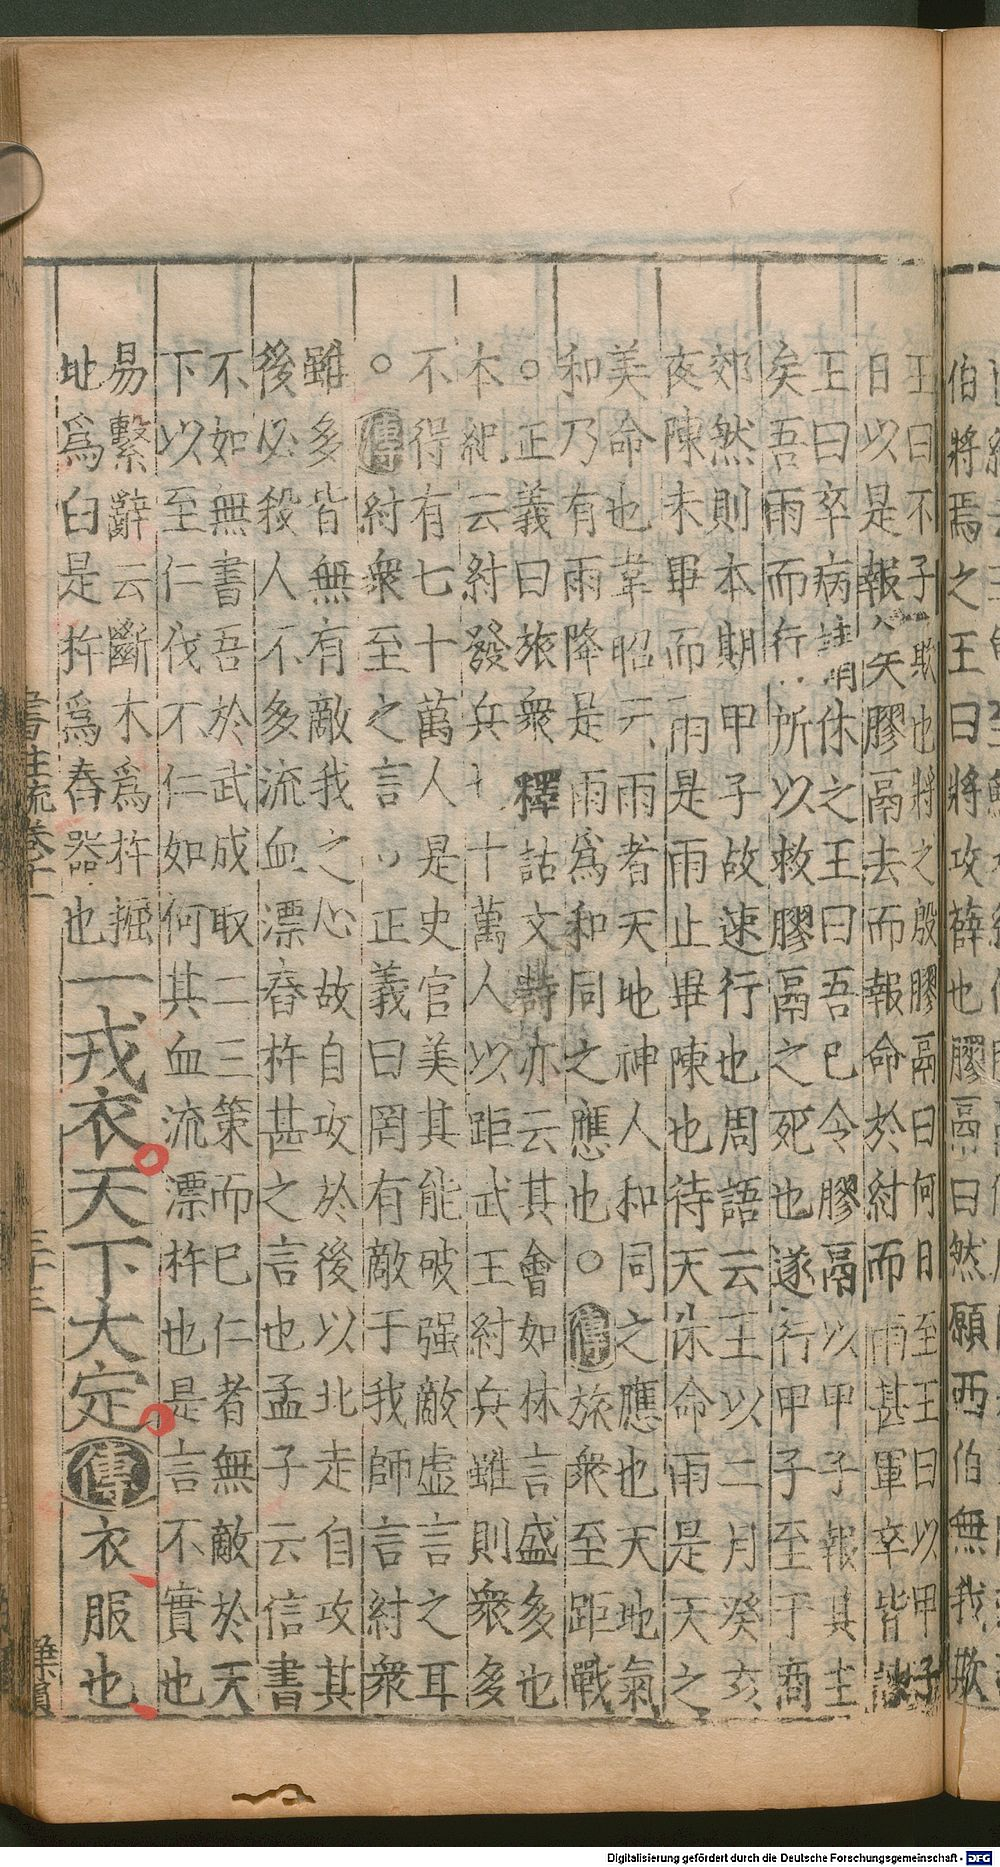 伯將焉之王曰將攻薛也膠鬲曰然願西伯無我欺
王曰不子欺也將之殷膠鬲曰何日至王曰以甲子
日以是報矣膠鬲去而報命於紂而雨甚軍卒皆諫
王曰卒病請休之王曰吾已令膠鬲以甲子報其主
矣吾雨而行所以救膠鬲之死也遂行甲子至于商
郊然則本期甲子故速行也周語云王以二月癸亥
夜陳未畢而雨是雨止畢陳也待天休命雨是天之
美命也韋昭云雨者天地神人和同之應也天地氣
和乃有雨降是雨為和同之應也○傳旅眾至距戰
○正義曰旅眾釋詁文詩亦云其會如林言盛多也
本紀云紂發兵七十萬人以距武王紂兵雖則眾多
不得有七十萬人是史官美其能破强敵虛言之耳
○傳紂眾至之言○正義曰罔有敵于我師言紂眾
雖多皆無有敵我之心故自攻於後以北走自攻其
後必殺人不多流血漂舂杵甚之言也孟子云信書
不如無書吾於武成取二三策而已仁者無敵於天
下以至仁伐不仁如何其血流漂杵也是言不實也
易繫辭云斷木為杵掘
地為臼是杵為舂器也
一戎衣天下大定傳衣服也
書注疏卷十一
三十三
Digitalisierung gefördert durch die Deutsche Forschungsgemeinschaft - DFG